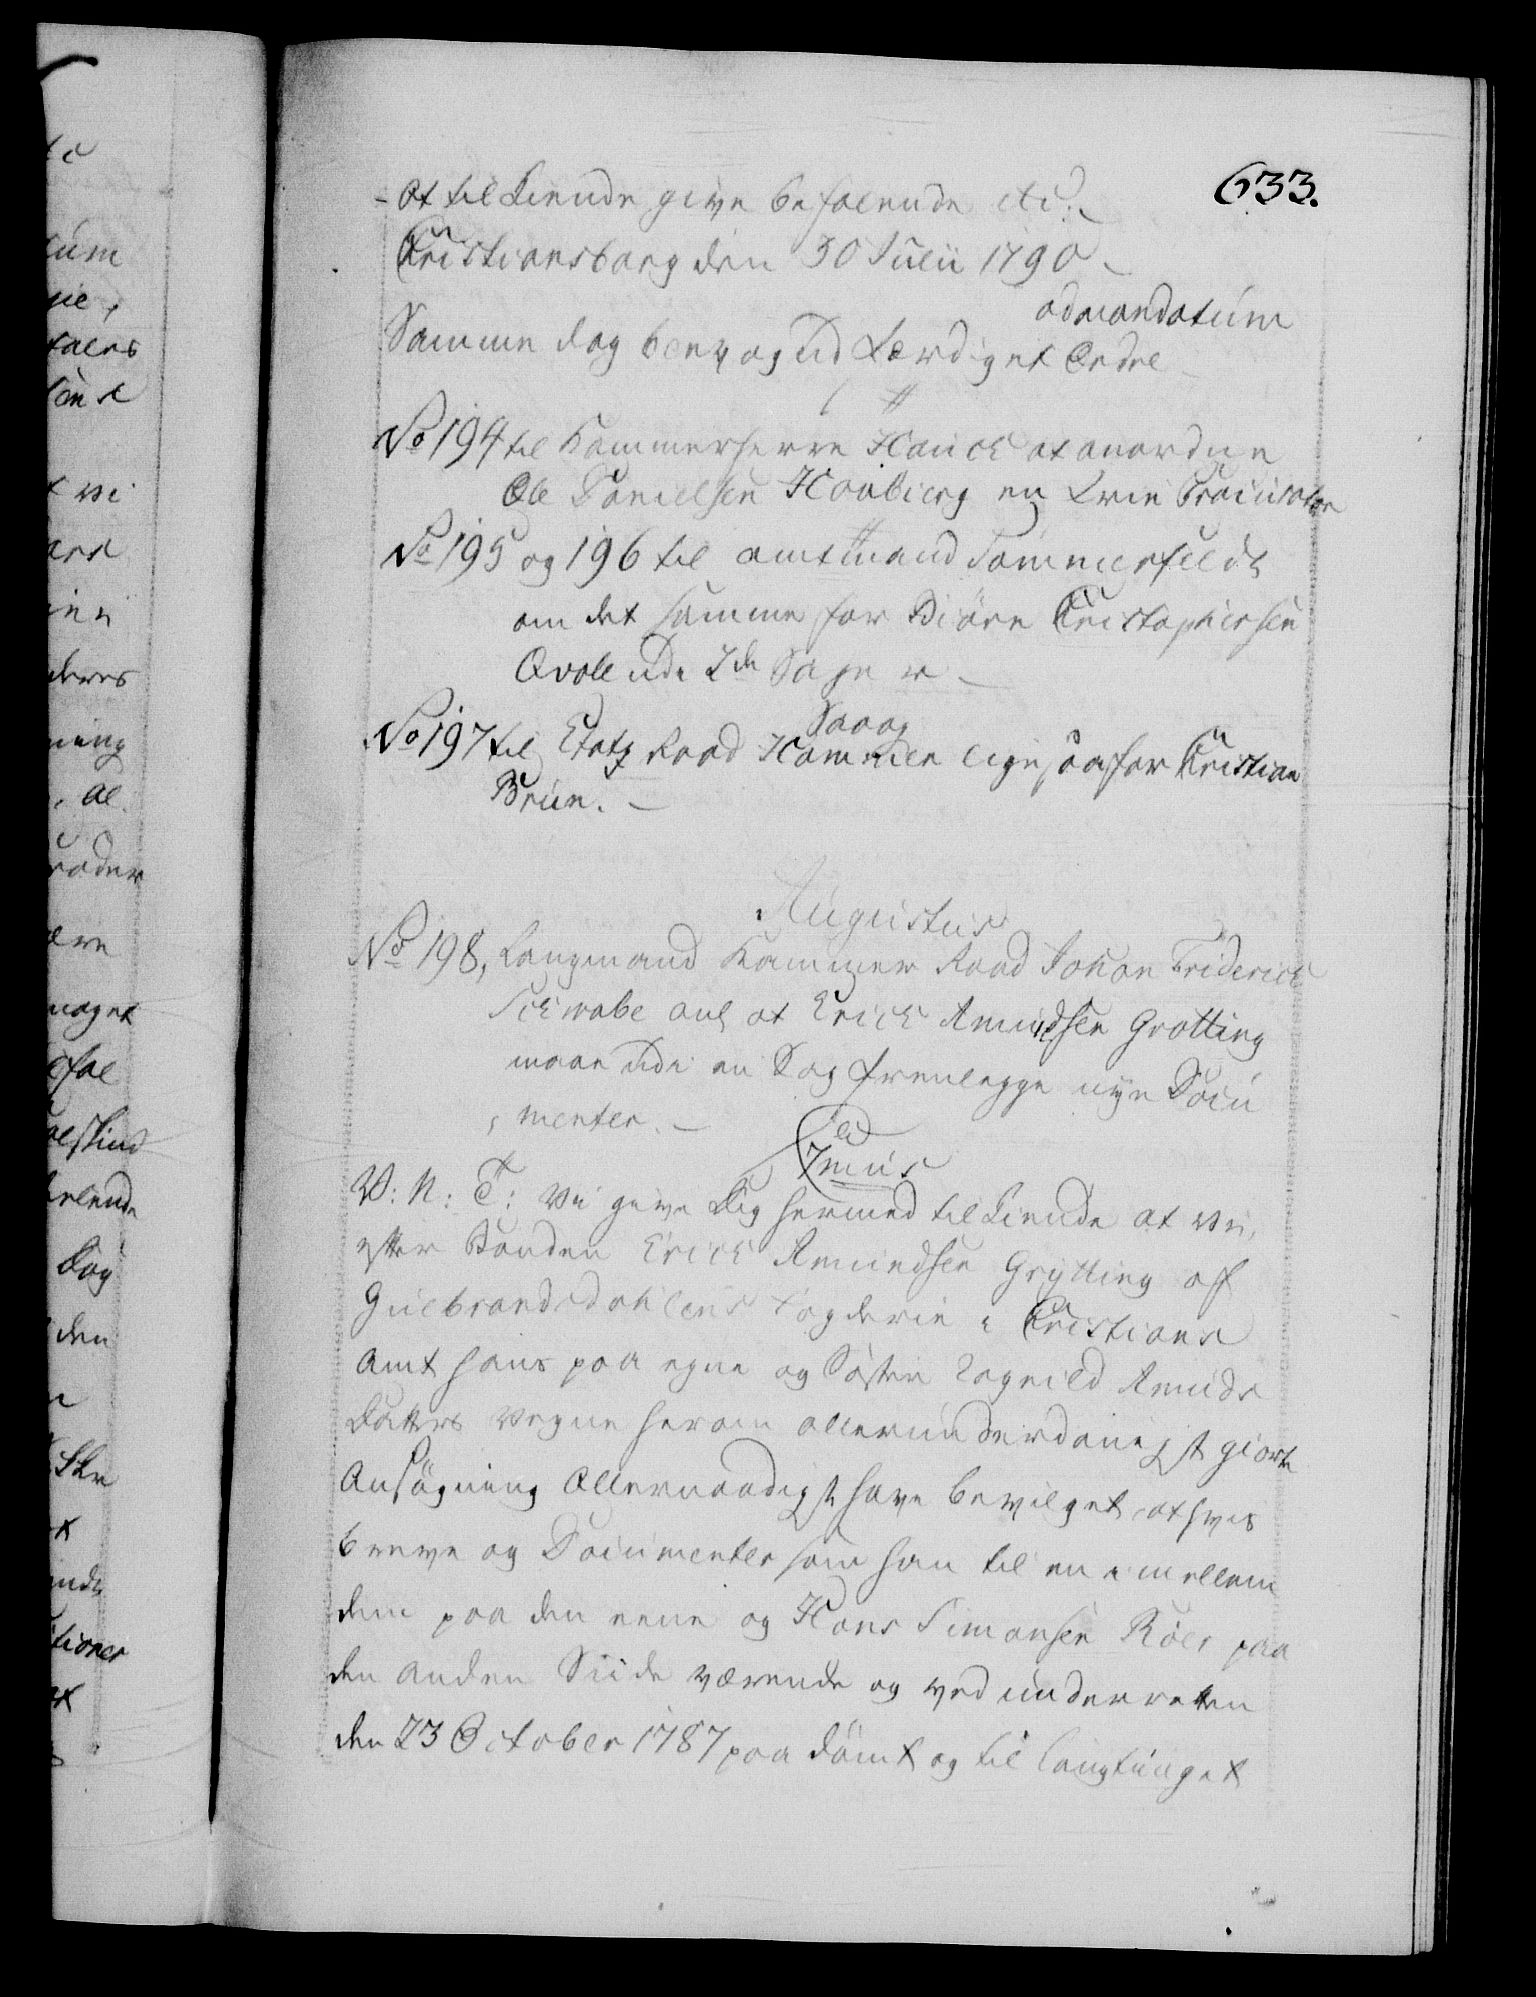 633.
- at til Kiende give befalende etc:
Christiansborg den 30 Julii 1790 -
ad mandatum
Samme dag blev og udfærdiget Ordre
No 194 til Kammerherre Hauch at anordne
Ole Danielsen Houbierg en Frie Procurator
No 195 og 196 til amtmand Sommerfeldt
om det samme for Biørn Christophersen
Qvale udi 2de Sager -
No 197 til Etatz Raad Hammer ligesaa for Christian
Brun. -
Augustus
No 198, Laugmand Kammer Raad Johan Friderich
Schwabe anl at Erich Amundsen Grøtting
maae udi en Sag fremlegge nye Docu
, menter. -
den
7mus
V: N: T: Vi give Dig hermed tilkiende at Vi,
efter Bonden Erich Amundsen Grytting af
Gulbrandsdahlens Fogderie i Christians
Amt hans paa egne og Søster Ragnild Amunds
Datters Vegne herom allerunderdanigst giorte
Ansøgning Allernaadigst have bevilget, at hvis
breve og Documenter som han til en imellem
dem paa den eene og Hans Simonsen Köer paa
den anden Siide værende og ved underretten
den 23 October 1787 paadømt og til laugtinget